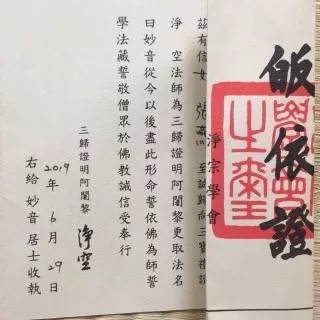 皈依證
淨宗學會
茲有信女 張 至誠歸向三寶禮請
淨 空法師為三歸證明阿闍黎更取法名
曰妙音從今以後盡此形命誓依佛為師誓
學法藏誓敬僧眾於佛教誠信受奉行
三歸證明阿闍黎 淨空
2019年6月29日
右給 妙音 居士收執